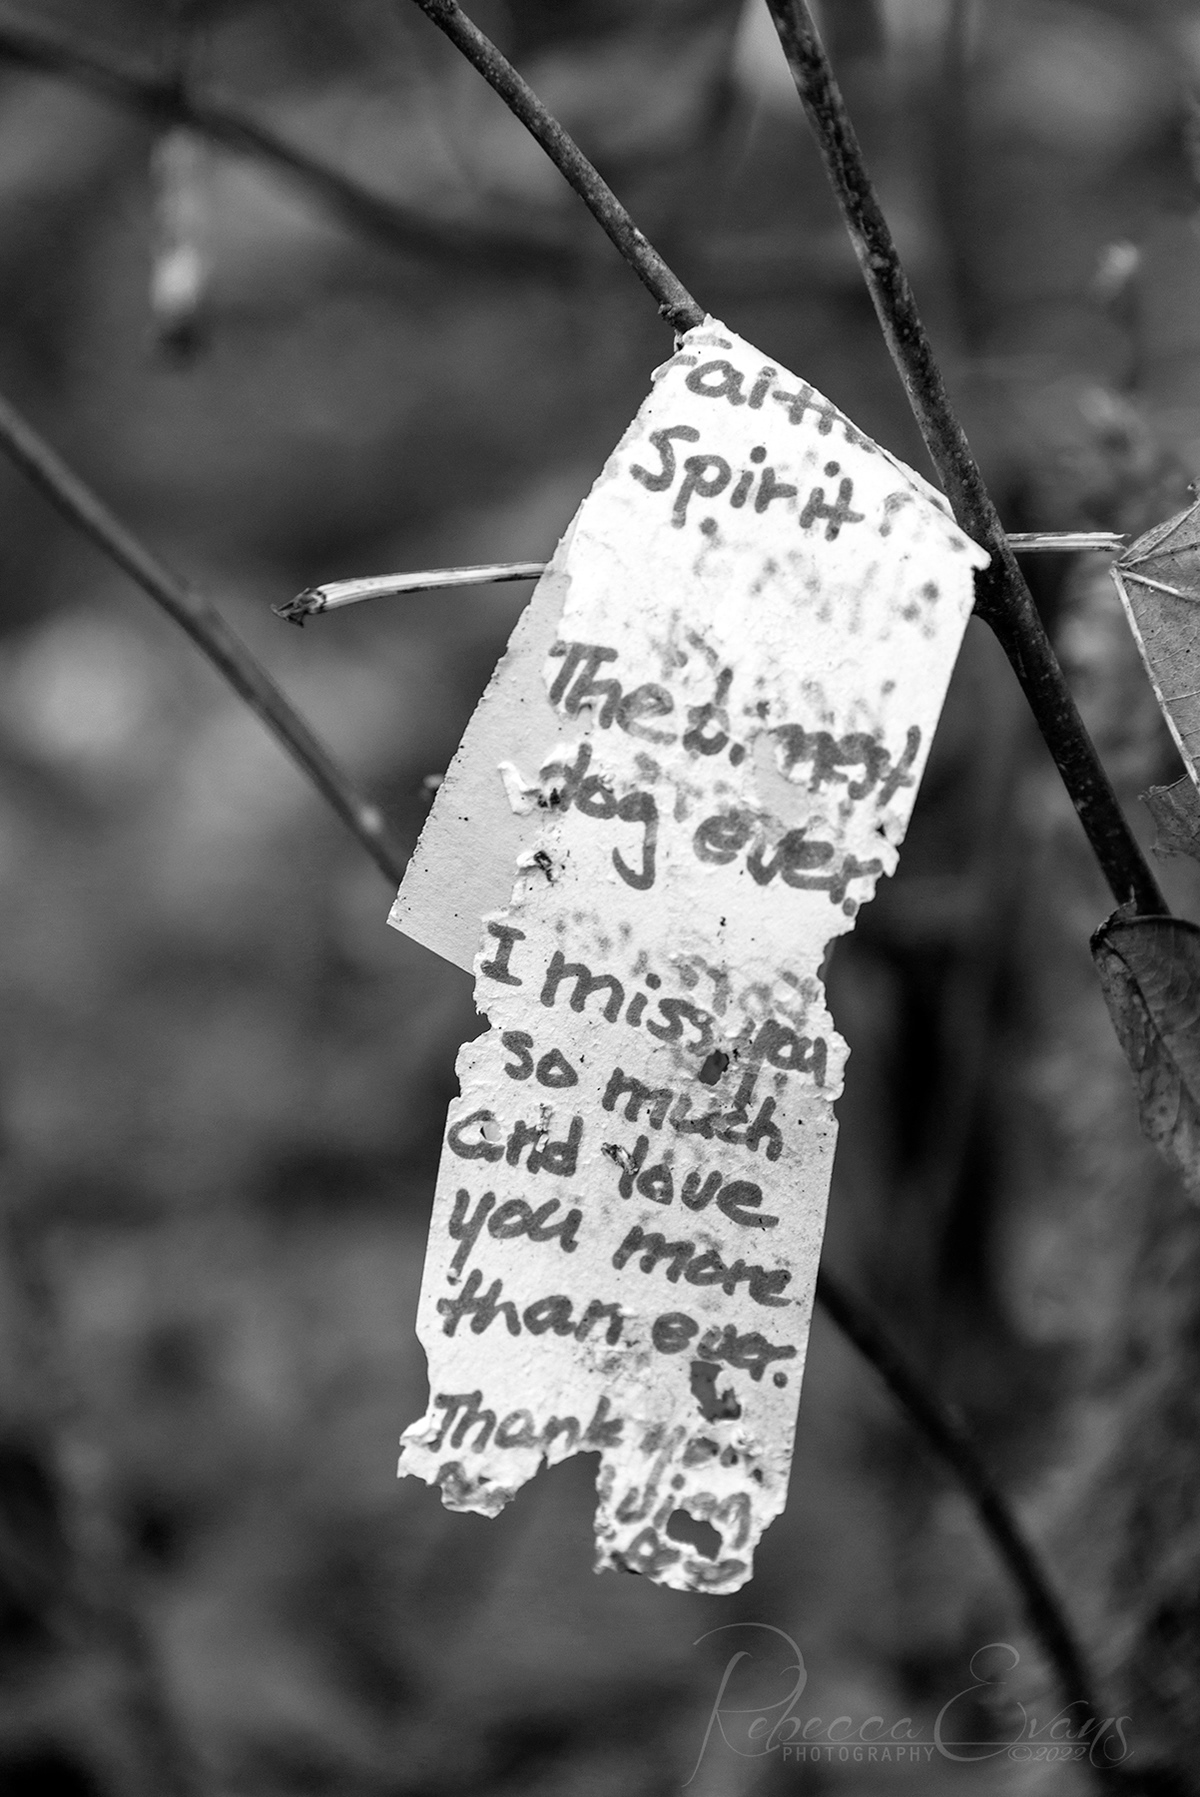 Faith
Spirit!
The
dog ever.
I miss you
so much
and love
you more
than ever.
Thank you
Rebecca Evans
PHOTOGRAPHY ©2022